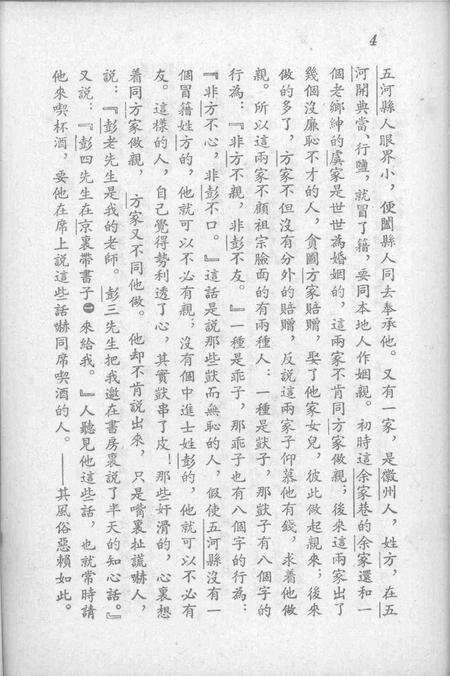 4
五河縣人眼界小，便闔縣人同去奉承他。又有一家，是徽州人，姓方，在五
河開典當，行鹽，就冒了籍，要同本地人作姻親。初時這余家巷的余家還和一
個老鄉紳的虞家是世世為婚姻的，這兩家不肯同方家做親；後來這兩家出了
幾個沒廉恥不才的人，貪圖方家賠贈，娶了他家女兒，彼此做起親來；後來
做的多了，方家不但沒有分外的賠贈，反說這兩家子仰慕他有錢，求着他做
親。所以這兩家不顧祖宗臉面的有兩種人：一種是獃子，那獃子有八個字的
行為：『非方不親，非彭不友。』一種是乖子，那乖子也有八個字的行為：
『非方不心，非彭不口。』這話是說那些獃而無恥的人，假使五河縣沒有一
個冒籍姓方的，他就可以不必有親；沒有個中進士姓彭的，他就可以不必有
友。這樣的人，自己覺得勢利透了心，其實獃串了皮！那些奸滑的，心裏想
着同方家做親，方家又不同他做。他却不肯說出來，只是嘴裏扯謊嚇人，
說：『彭老先生是我的老師。彭三先生把我邀在書房裏說了半天的知心話。』
又說：『彭四先生在京裏帶書子㊀來給我。』人聽見他這些話，也就常時請
他來喫杯酒，要他在席上說這些話嚇同席喫酒的人。——其風俗惡賴如此。